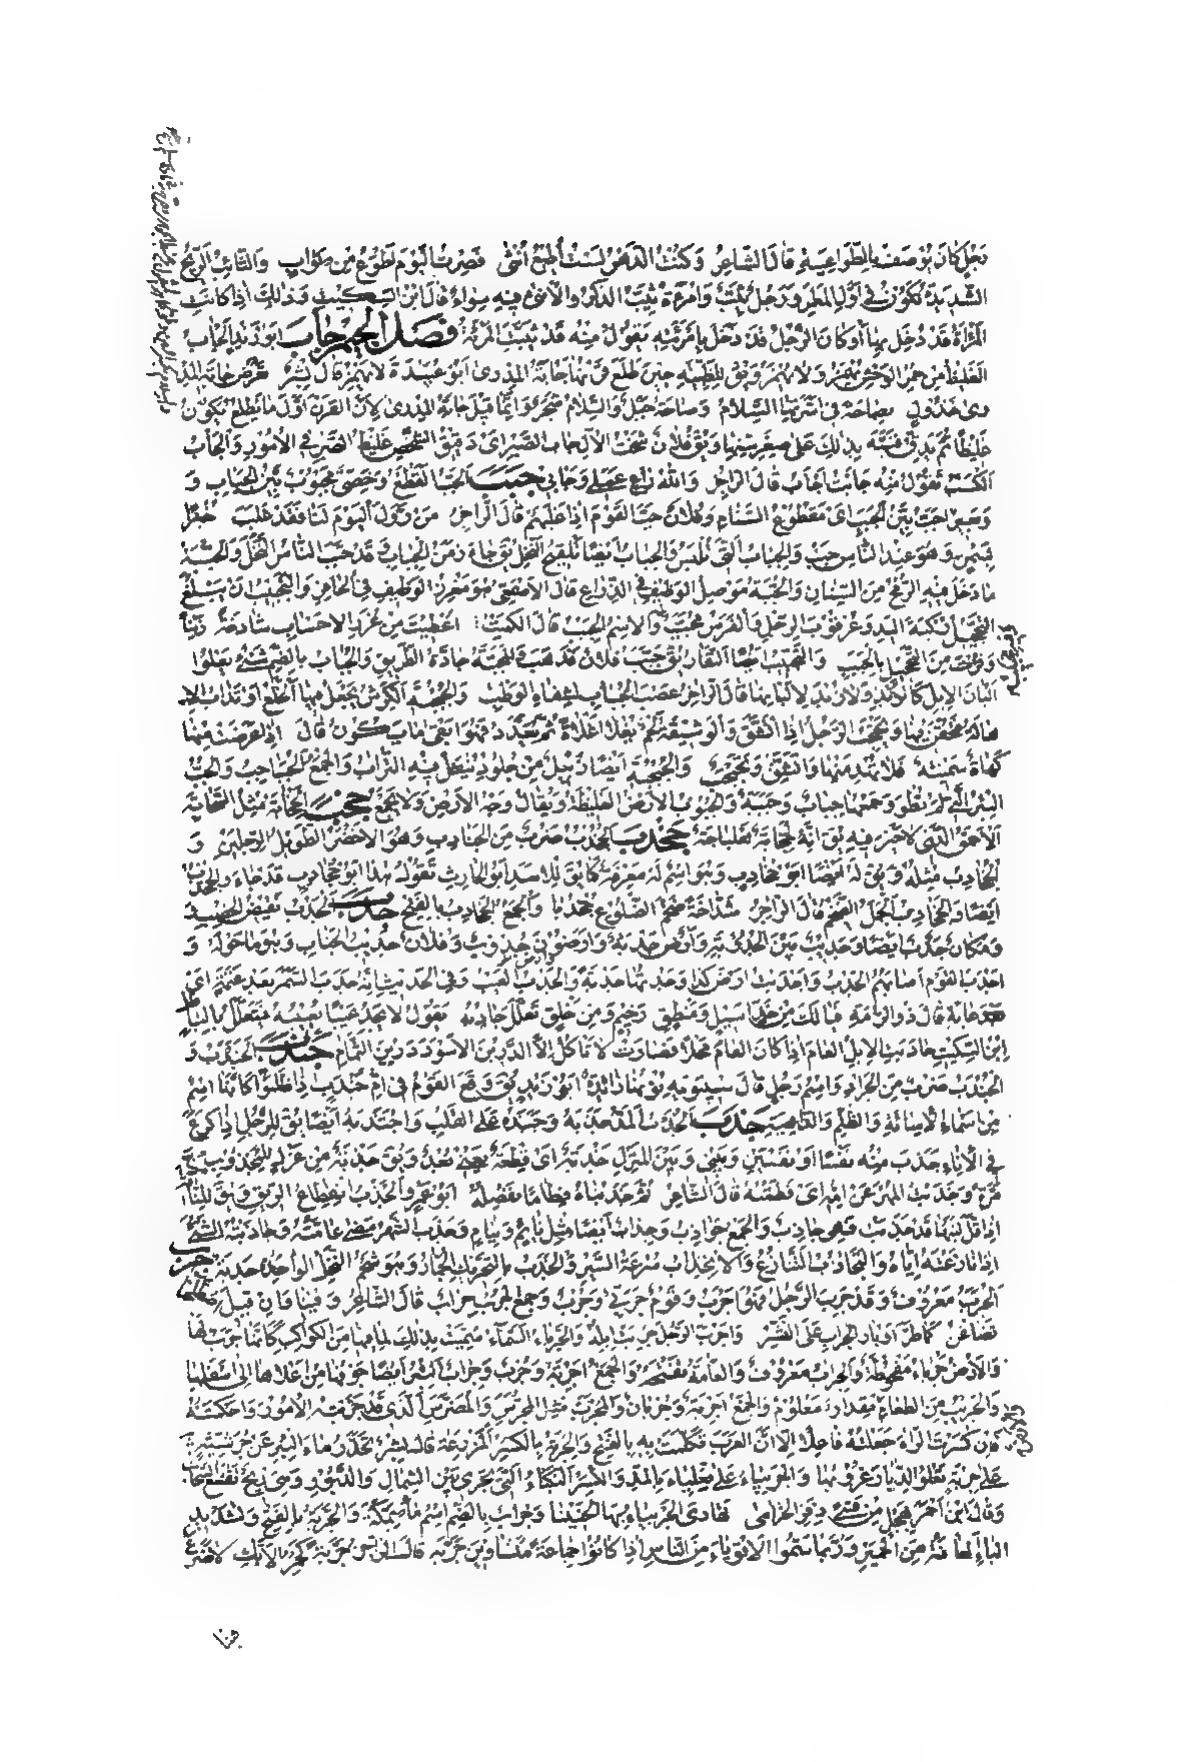 قال الشاعر وكنت الدهر لست أطيع أنثى فصرت اليوم أطوع من ثواب والثائب الريح
الشديدة تكون في أول المطر ورجل ثيب وامرءة ثيب الذكر والأنثى فيه سواء قال ابن السكيت وذلك إذا كانت
المرأة قد دخل بها أو كان الرجل قد دخل بامرأته تقول منه قد ثيبت المرأة فصل الجيم جأب أبو زيد الجأب
الغليظ من حمر الوحش يهمز ولا يهمز ويق للظبية حين طلع قرنها جابة المدرى أبو عبيدة لا يهمز قال بشر تعرض جابة المد
رى خذول بصاحة في أسرتها السلام وصاحة جبل والسلام شجر وإنما قيل جابة المدرى لأن القرن أول ما تطلع يكون
غليظا ثم يدق فنبه بذلك على صغر سنها ويق فلان شخت الآل جاب الصبر أي دقيق الشخص غليظ الصبر في الأمور والجأب
الكسب تقول منه جأبت أجأب قال الراجز والله راع عملي وجأبي جبب الجب القطع وخصي مجبوب بين الجباب و
بعير أجب بين الجبب أي مقطوع السنام وفلان جب القوم إذا غلبهم قال الراجز من رول اليوم لنا فقد غلب خبزا
بسمن وهو عند الناس جب والجباب التي تلبس والجباب أيضا تلقيح النخل يق جاء زمن الجباب وقد جب الناس النخل والجبة
ما دخل فيه الرمح من السنان والجبة موصل الوظيف في الذراع قال الأصمعي هو مغرز الوظيف في الحافر والتجبيب أن يبلغ
التحجيل ركبة اليد وعرقوب الرجل والفرس مجبب والاسم الجبب قال الكميت أعطيت من غرر الأحساب شادخة زينا
وفزت من التحجيل بالجبب والتجبيب أيضا النفار يق جبب فلان فذهب والمجبة جادة الطريق والجباب بالضم شيء يعلوا
ألبان الإبل كالزبد ولا زبد لألبانها قال الراجز عصب الجباب بشفاه الوطب والجبجبة الكرش يجعل فيها الخلع أو تذاب الإ
هالة فتحقن فيها
كهاة سمينة فلا تهد منها واتشق وتجبجب والجبجبة أيضا زبيل من جلود ينقل فيه التراب والجمع الجباجب والجب
البئر التي لم تطو وجمعها جباب وجببة والجبوب الأرض الغليظة ويقال وجه الأرض ولا يجمع جحجب
الأحمق الذي لا خير فيه يق إنه لجخابة هلباجة جخدب الجخدب ضرب من الجنادب وهو الأخضر الطويل الرجلين و
الجخادب مثله ويق له أيضا أبو جخادب وهو اسم له معرفة كما يق للأسد أبو الحارث تقول هذا أبو جخادب قد جاء والجخدب
أيضا والجخادب الجمل الضخم قال الراجز شداخة ضخم الضلوع جخدبا والجمع الجخادب بالفتح جدب الجدب نقيض الخصب
ومكان جدب أيضا وجديب بين الجدوبة وأرض جدبة وأرضون جدوب وفلان جديب الجناب وهو ما حوله و
أجدب القوم أصابهم الجدب وأجدبت أرض كذا وجدتها جدبة والجدب العيب وفي الحديث أنه جدب السمر بعد عتمة أي
عابه قال ذو الرمة فيا لك من خد أسيل ومنطق رخيم ومن خلق تعلل جادبه يقول لا يجد عيبا يعيبه فيتعلل بالباطل
ابن السكيت جادبت الإبل العام إذا كان العام محلا فصارت لا تأكل إلا الدرين الأسود درين الثمام جندب الجندب و
الجندب ضرب من الجراد واسم رجل قال سيبويه نونها زائدة أبو زيد يق وقع القوم في أم جندب إذا ظلموا كأنها اسم
من أسماء الإساءة والظلم والداهية جذب الجذب المد جذبه وجبذه على القلب واجتذبه أيضا يق للرجل إذا كرع
في الإناء جذب منه نفسا أو نفسين وبيني وبين المنزل جذبة أي قطعة يعني بعد ويق جذبة من غزل
مرة وجذبت المهر عن أمه أي فطمته قال الشاعر ثم جذبناه فطاما نفصله أبو عمرو الجذب انقطاع الريق ويق للناقة
إذا قل لبنها قد جذبت فهي جاذب والجمع جواذب وجذاب أيضا مثل نائم ونيام وجذب الشهر مضى عامته وجاذبته الشيء
إذا نازعته إياه والتجاذب التنازع والانجذاب سرعة السير والجذب بالتحريك الجمار وهو شحم النخل الواحدة جذبة جرب
الجرب معروف وقد جرب الرجل فهو أجرب وقوم جربى وجرب وجمع الجرب جراب قال الشاعر وفينا وإن قيل اصطلحنا
تضاغن كما طر أوبار الجراب على النشر وأجرب الرجل جربت إبله والجرباء السماء سميت بذلك لما فيها من الكواكب كأنها جرب لها
والأرض جرباء مقحوطة والجراب معروف والعامة تفتحه والجمع أجربة وجرب وجراب البئر أيضا جوفها من أعلاها إلى أسفلها
والجريب من الطعام مقدار معلوم والجمع أجربة وجربان والمجرب مثل المجرس والمضرس الذي قد جربته الأمور وأحكمته
فإن كسرت الراء جعلته فاعلا إلا أن العرب تكلمت به بالفتح والجربة بالكسر المزرعة قال بشر تحدر ماء البئر عن جرشية
على جربة تعلو الديار غروبها والجربياء على فعلياء بالمد والكسر النكباء التي تجري بين الشمال والدبور وهي ريح تقشع السحاب
وقال ابن أحمر بهجل من قسا ذفر الخزامى تهادى الجربياء به الحنينا وجراب بالضم اسم ماء بمكة والجربة بالفتح وتشديد
الباء العانة من الحمير وربما سموا الأقوياء من الناس إذا كانوا جماعة متساوين جربة قال الراجز جربة كحمر الأبك لا ضرع